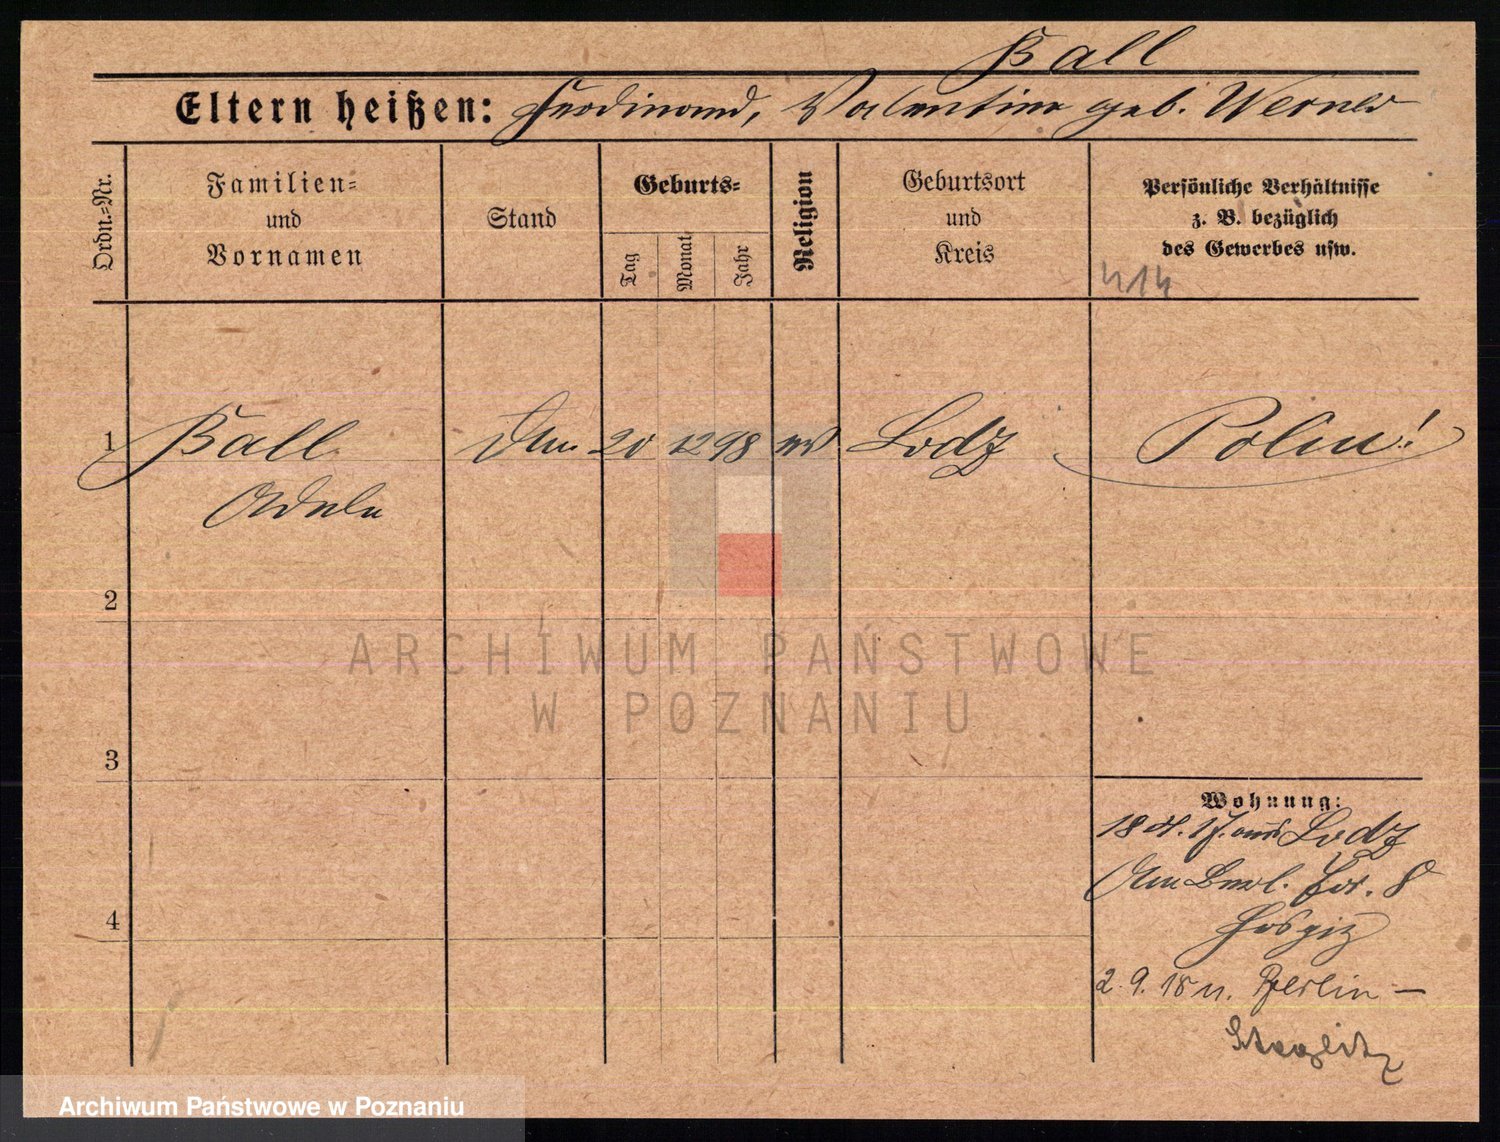 Ball
Eltern heißen: Ferdinand, Valentine geb. Werner
Ordn.=Nr.
Familien=
und
Vornamen
Stand
Geburts=
Tag
Monat
Jahr
Religion
Geburtsort
und
Kreis
Persönliche Verhältnisse
z. B. bezüglich
des Gewerbes usw.
1 Ball 20 12 98 ev Lodz
Adele
2
ARCHIWUM PAŃSTWOWE
W POZNANIU
3
Wohnung:
18 4. 17. aus Lodz
Am Berl. Tor. 8
4
Hospiz
2. 9. 18 n. Berlin –
Steglitz
Archiwum Państwowe w Poznaniu